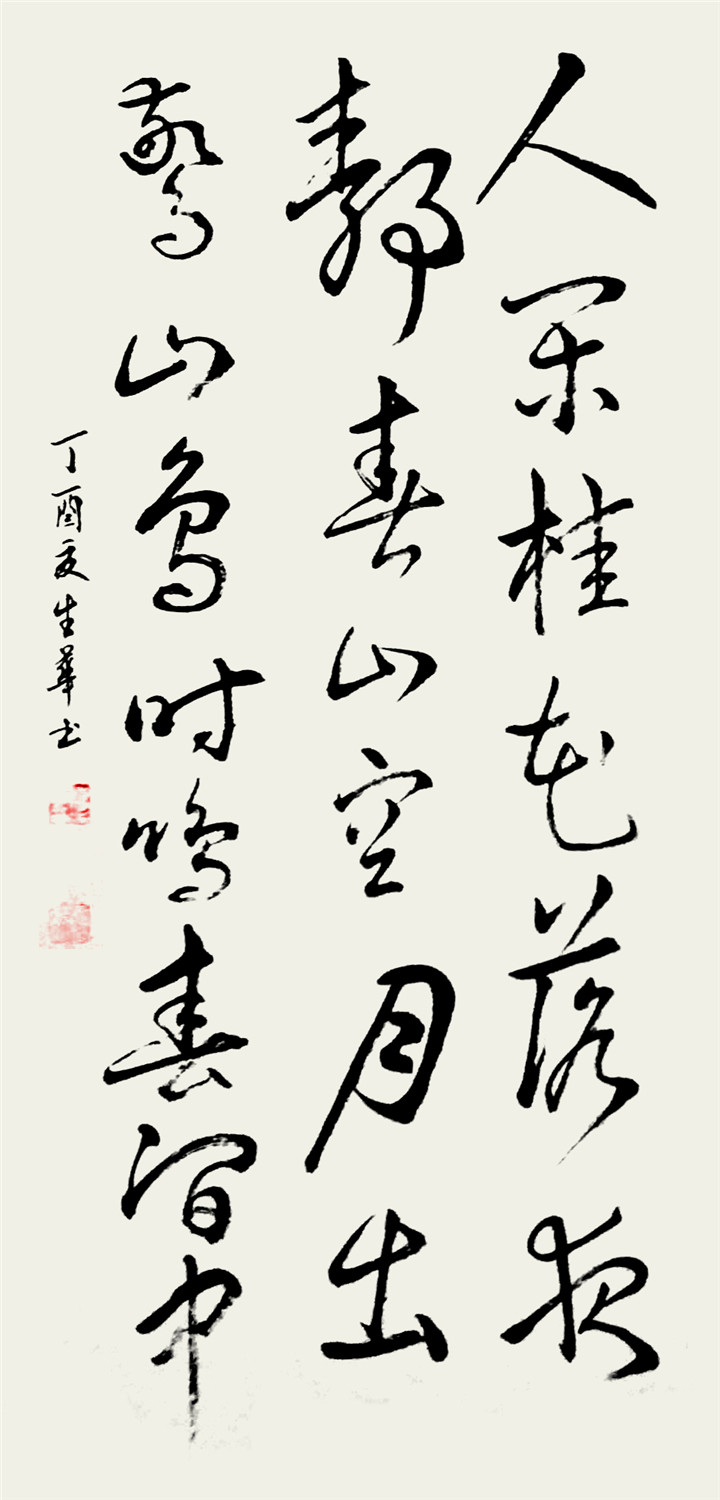 人闲桂花落夜
静春山空月出
驚山鸟时鸣春涧中
丁酉夏生華书